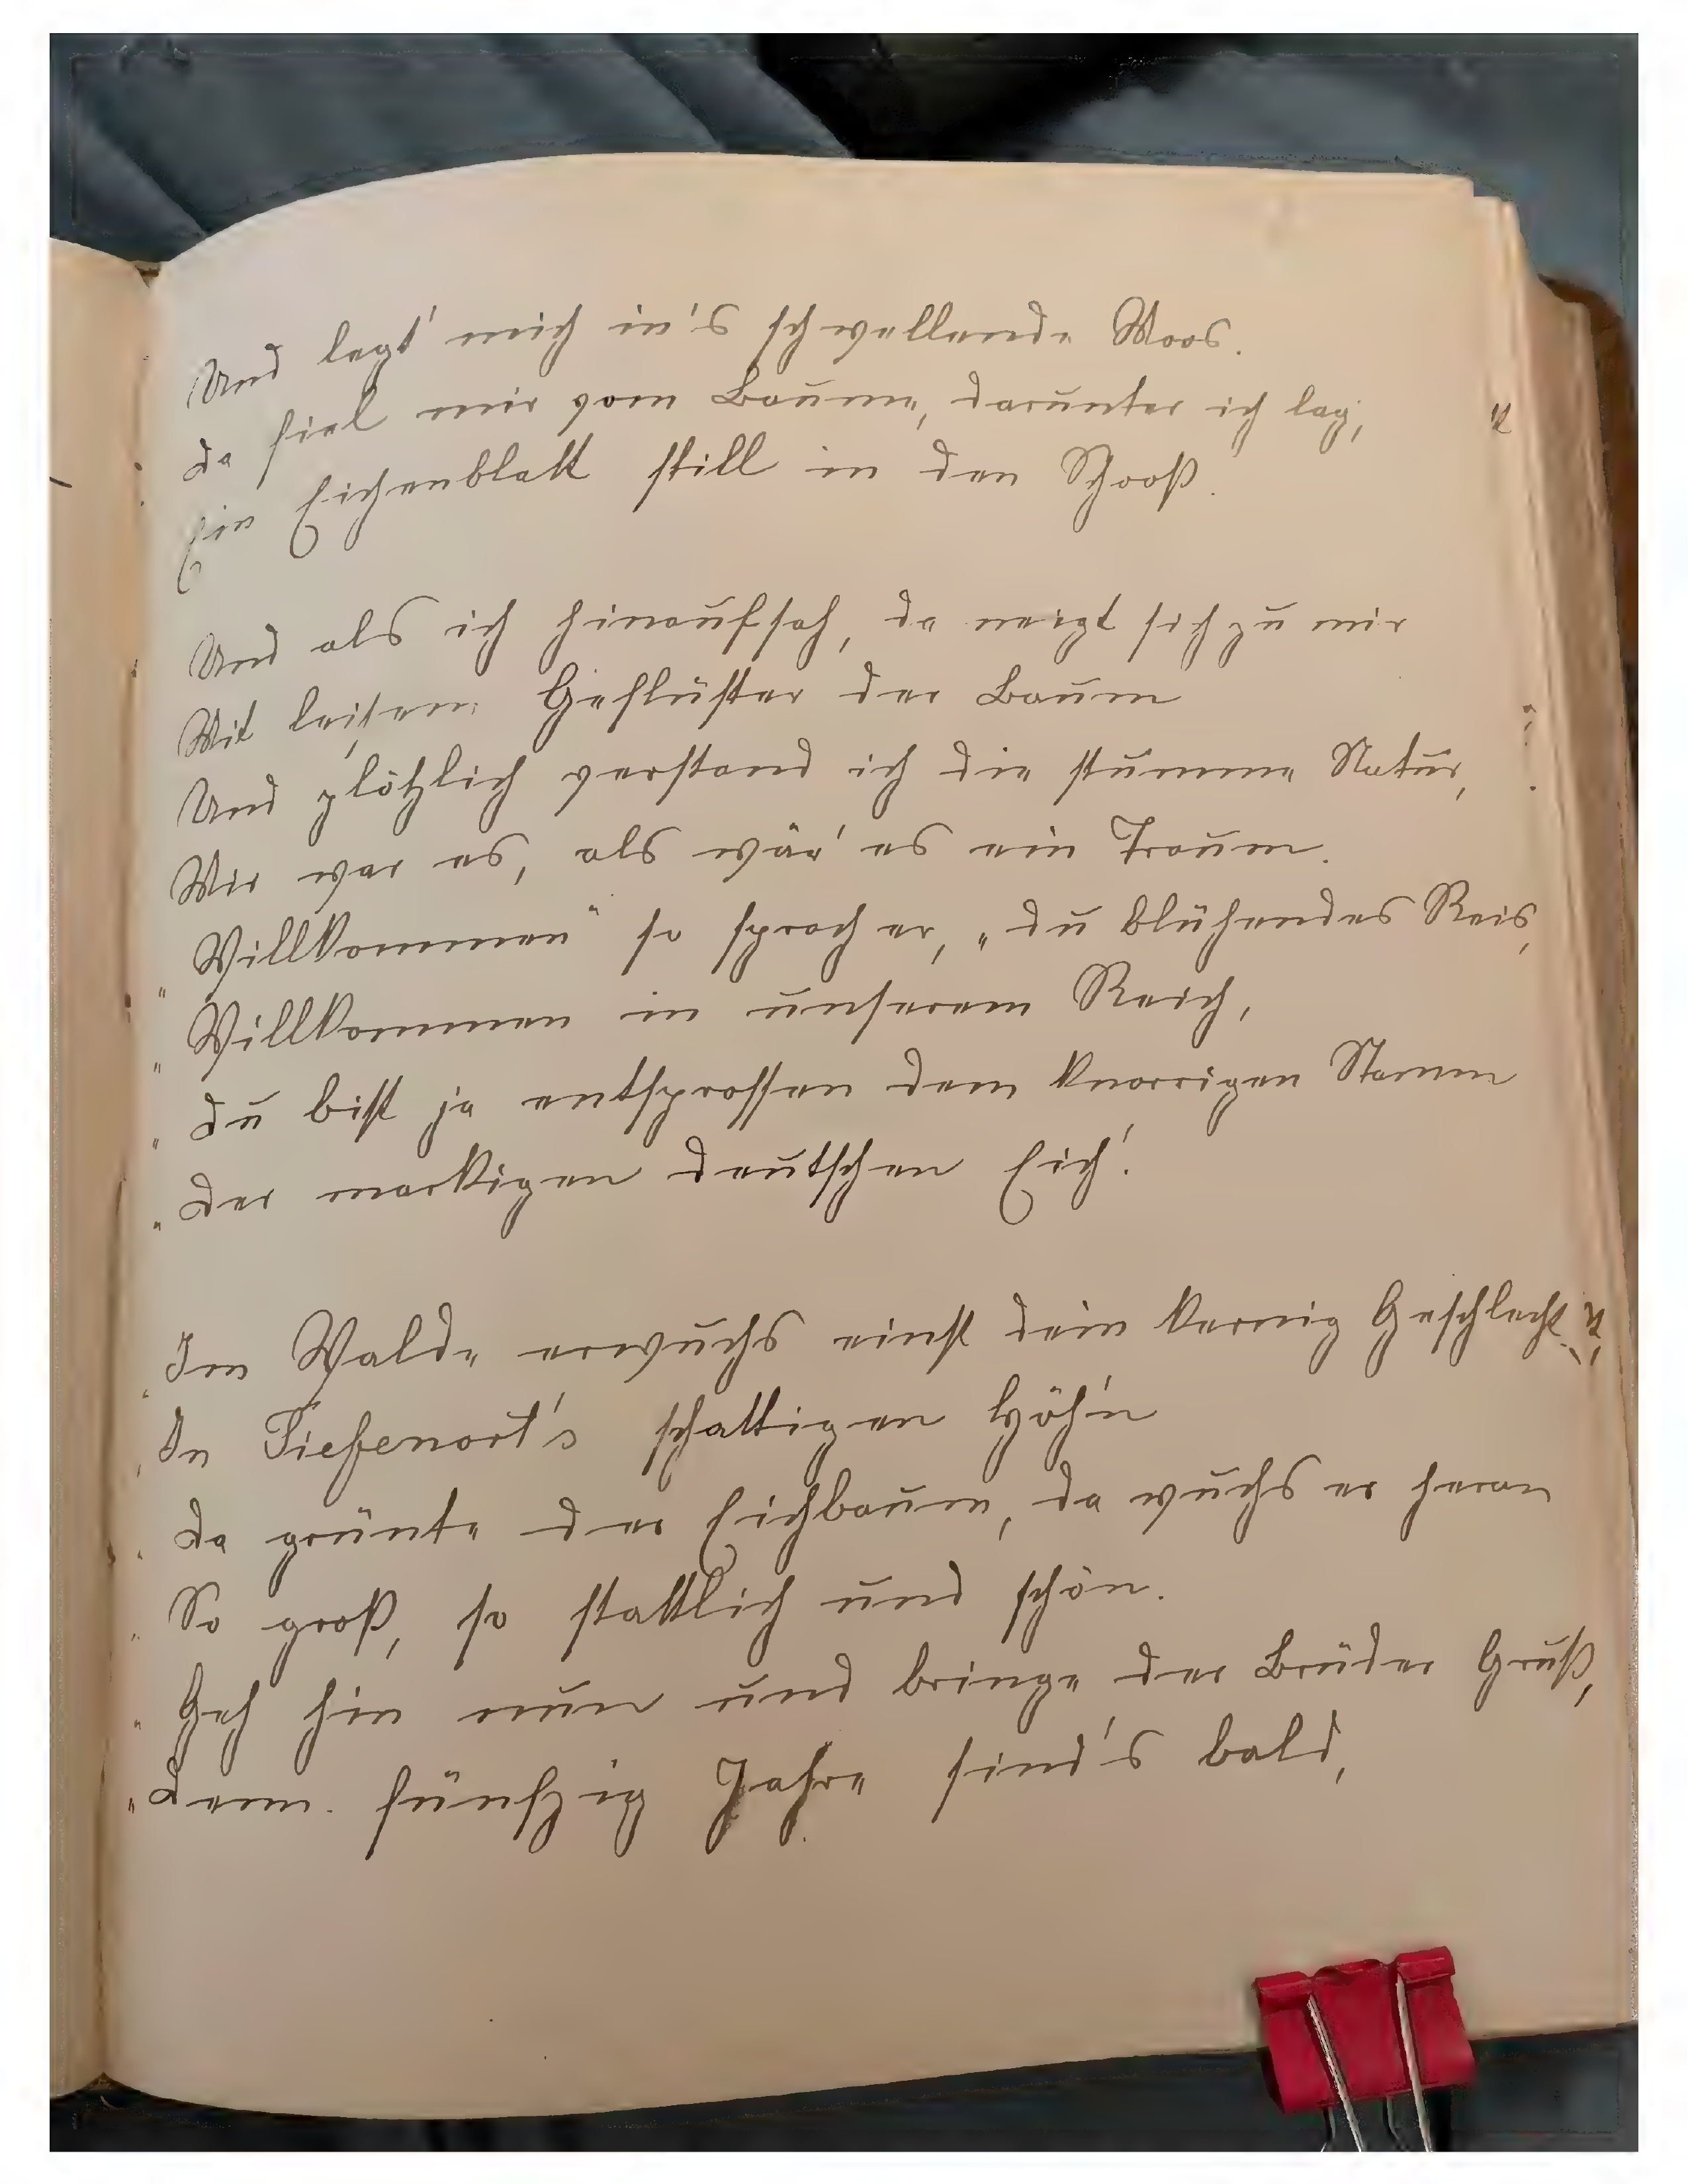 Und legt' mich in's schwellende Moos.
Da fiel mir vom Baume, darunter ich lag,
Ein Eichenblatt still in den Schooß.
Und als ich hinaufsah, da neigt sich zu mir
Mit leisem Geflüster der Baum
Und plötzlich verstand ich die stumme Natur,
Mir war es, als wär' es ein Traum.
„Willkommen" so sprach er, „du blühendes Reis,
„Willkommen in unserem Reich,
„Du bist ja entsprossen dem knorrigen Stamm
„Der markigen deutschen Eich'!
„Im Walde erwuchs einst dein kernig Geschlecht
„In Tiefenort's schattigen Höh'n
„Da grünte der Eichbaum, da wuchs er heran
„So groß, so stattlich und schön.
„Geh hin nun und bringe der Brüder Gruß,
„Denn fünfzig Jahre sind's bald,